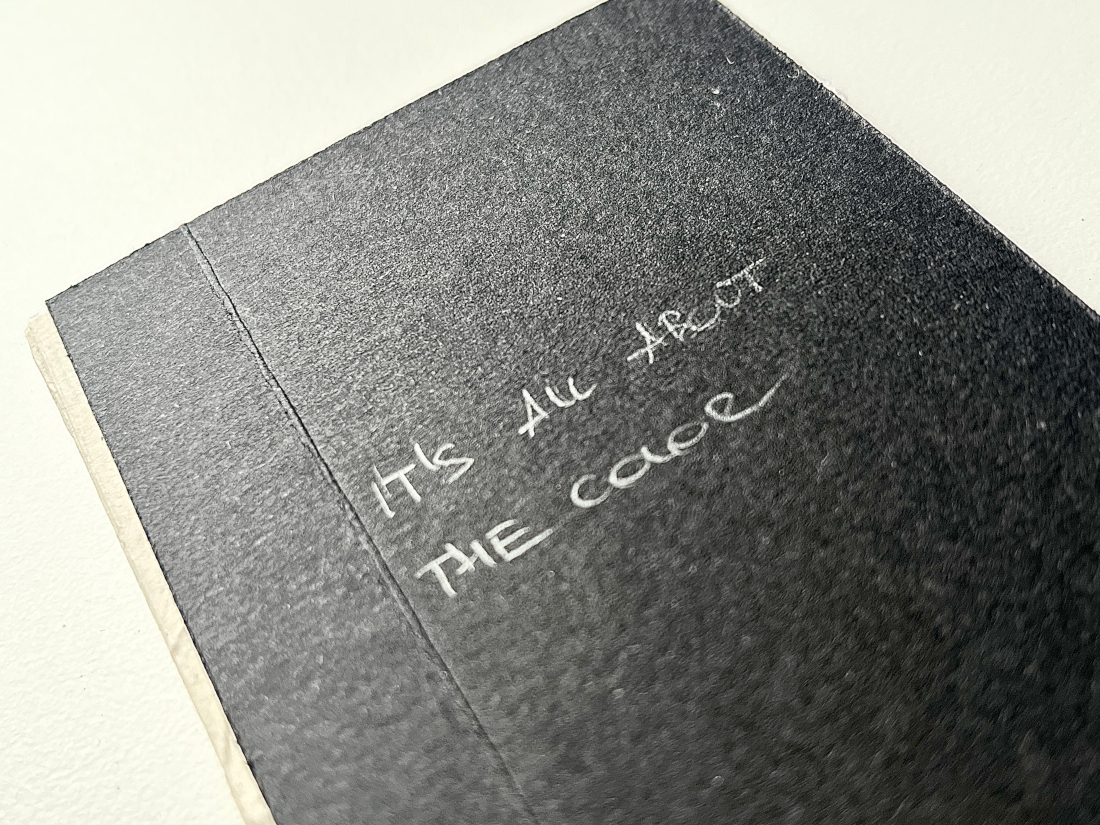 IT'S All ABOUT
THE COlOR